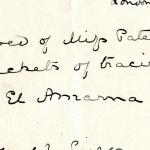 London
ved of Miss Pate
ckets of tracin
El Amarna